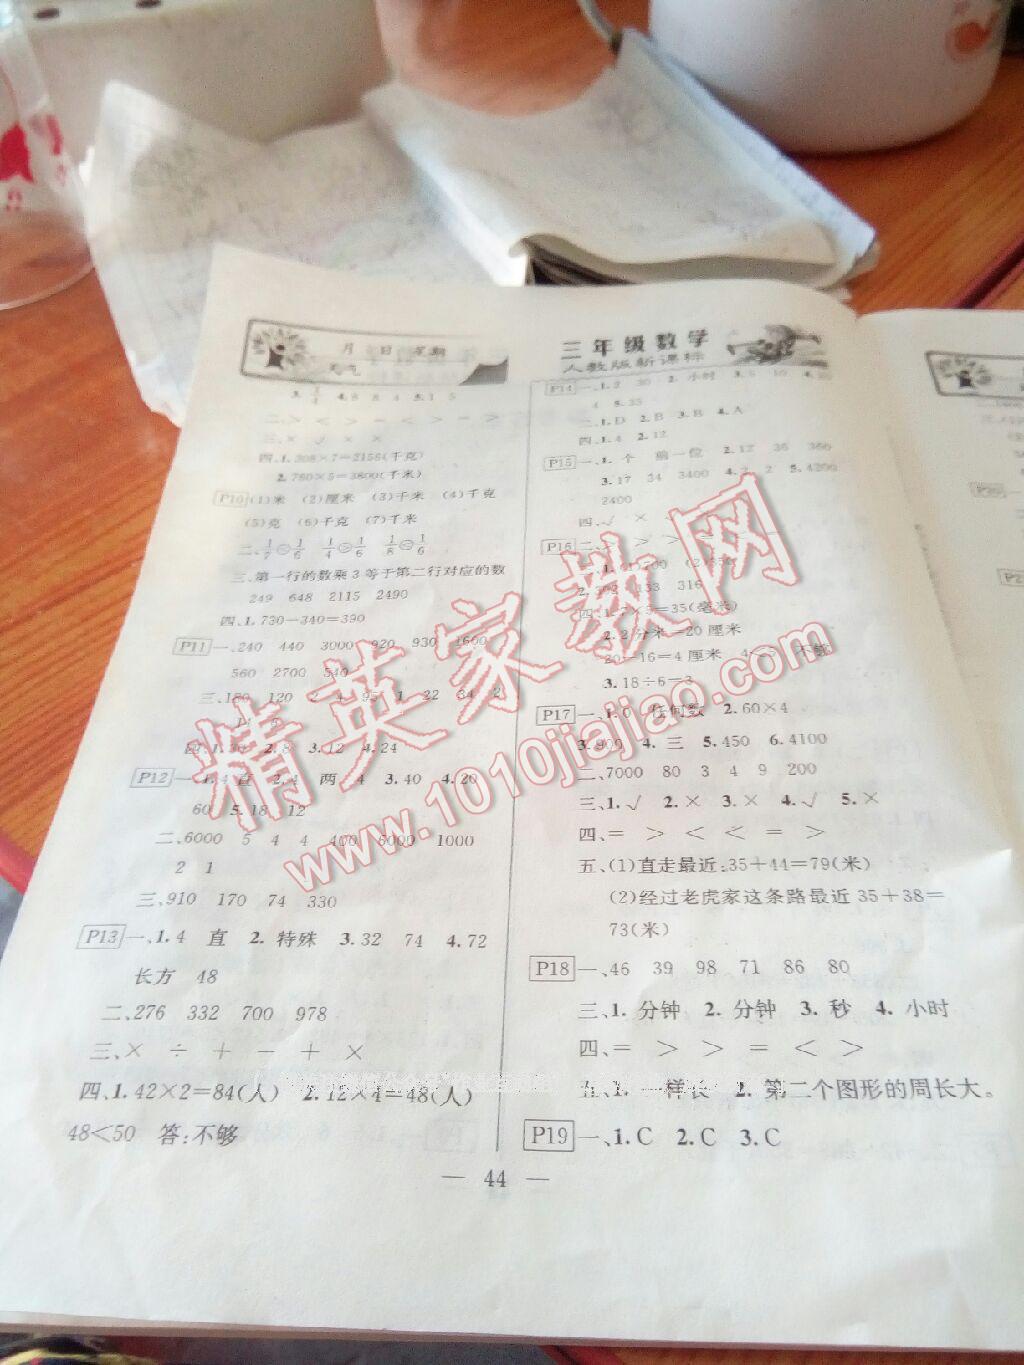 月 日 星期
天气
4.8 8 4 5.1 5
二、> < > = < > = >
三、× √ × ×
四、1.308×7=2156(千克)
2.760×5=3800(千米)
P10 (1)米 (2)厘米 (3)千米 (4)千克
(5)克 (6)千克 (7)千米
三、第一行的数乘3等于第二行对应的数
249 648 2115 2490
四、1.730-340=390
P11 一、240 440 3000 920 930 1600
560 2700 540
三、160 120 2 4 95 1 22 34
四、1.30 2.8 3.12 4.24
P12 一、1.4 直 2.4 两 4 3.40 4.20
60 5.18 12
二、6000 5 4 4 400 6000 1000
2 1
三、910 170 74 330
P13 一、1.4 直 2.特殊 3.32 74 4.72
长方 48
二、276 332 700 978
三、× ÷ + - + ×
四、1.42×2=84(人) 2.12×4=48(人)
48<50 答:不够
三年级数学
人教版新课标
P14 一、1.2 30 2.小时
4 5.33
二、1.D 2.B 3.B 4.A
四、1.4 2.12
P15 一、1.个 前一位 2.12 36 360
3.17 34 3400 4.2 2 5.4200
2400
四、√ ×
P16
四、1.7×5=35(毫米)
2.2分米=20厘米
20-16=4厘米 4<5 不够
3.18÷6=3
P17 一、1.0 任何数 2.60×4
3.900 4.三 5.450 6.4100
二、7000 80 3 4 9 200
三、1.√ 2.× 3.× 4.√ 5.×
四、= > < < = >
五、(1)直走最近:35+44=79(米)
(2)经过老虎家这条路最近 35+38=
73(米)
P18 一、46 39 98 71 86 80
三、1.分钟 2.分钟 3.秒 4.小时
四、= > > = < >
五、1.一样长 2.第二个图形的周长大。
P19 一、1.C 2.C 3.C
— 44 —
精英家教网
www.1010jiajiao.com